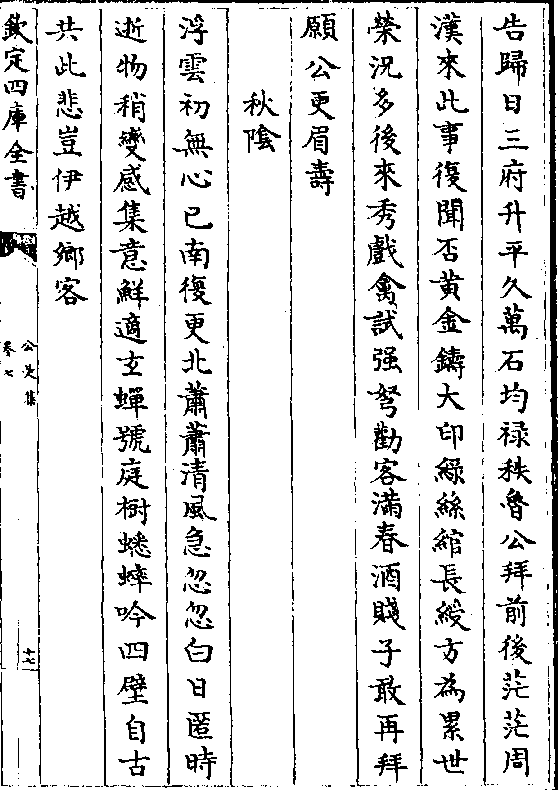 告歸日三府升平久萬石均禄秩魯公拜前後茫茫周
漢來此事復聞否黄金鑄大印綠絲綰長綬方為累世
榮況多後來秀戲禽試强弩勸客滿春酒賤子敢再拜
願公更眉壽
秋陰
浮雲初無心已南復更北蕭蕭清風急忽忽白日匿時
逝物稍變感集意鮮適玄蟬號庭樹蟋蟀吟四壁自古
共此悲豈伊越鄉客
欽定四庫全書
公是集
卷七
十七